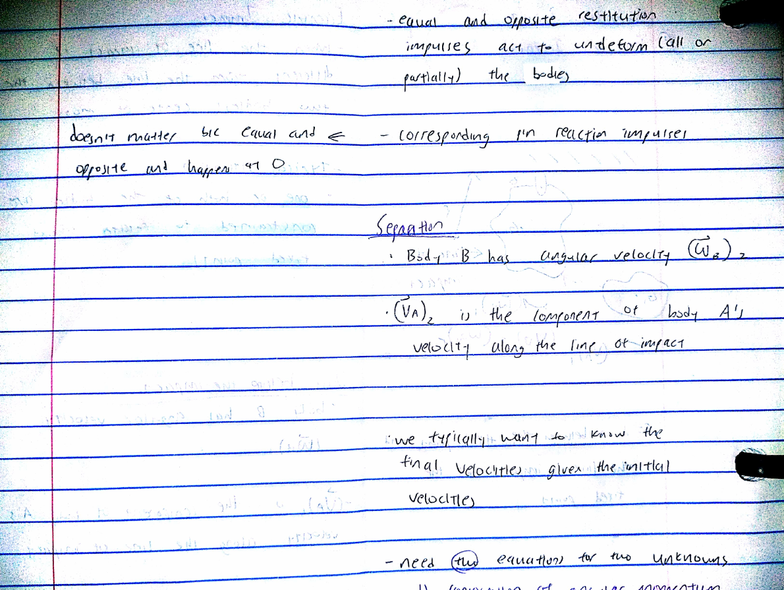 - equal and opposite restitution
impulses act to undeform (all or
partially) the bodies
doesn't matter b/c equal and ⇐ - corresponding pin reaction impulses
opposite and happen at O
Separation
· Body B has angular velocity (ω⃗_B)₂
· (V⃗_A)₂ is the component of body A's
velocity along the line of impact
· we typically want to know the
final velocities given the initial
velocities
- need two equations for two unknowns
1) conservation of angular momentum